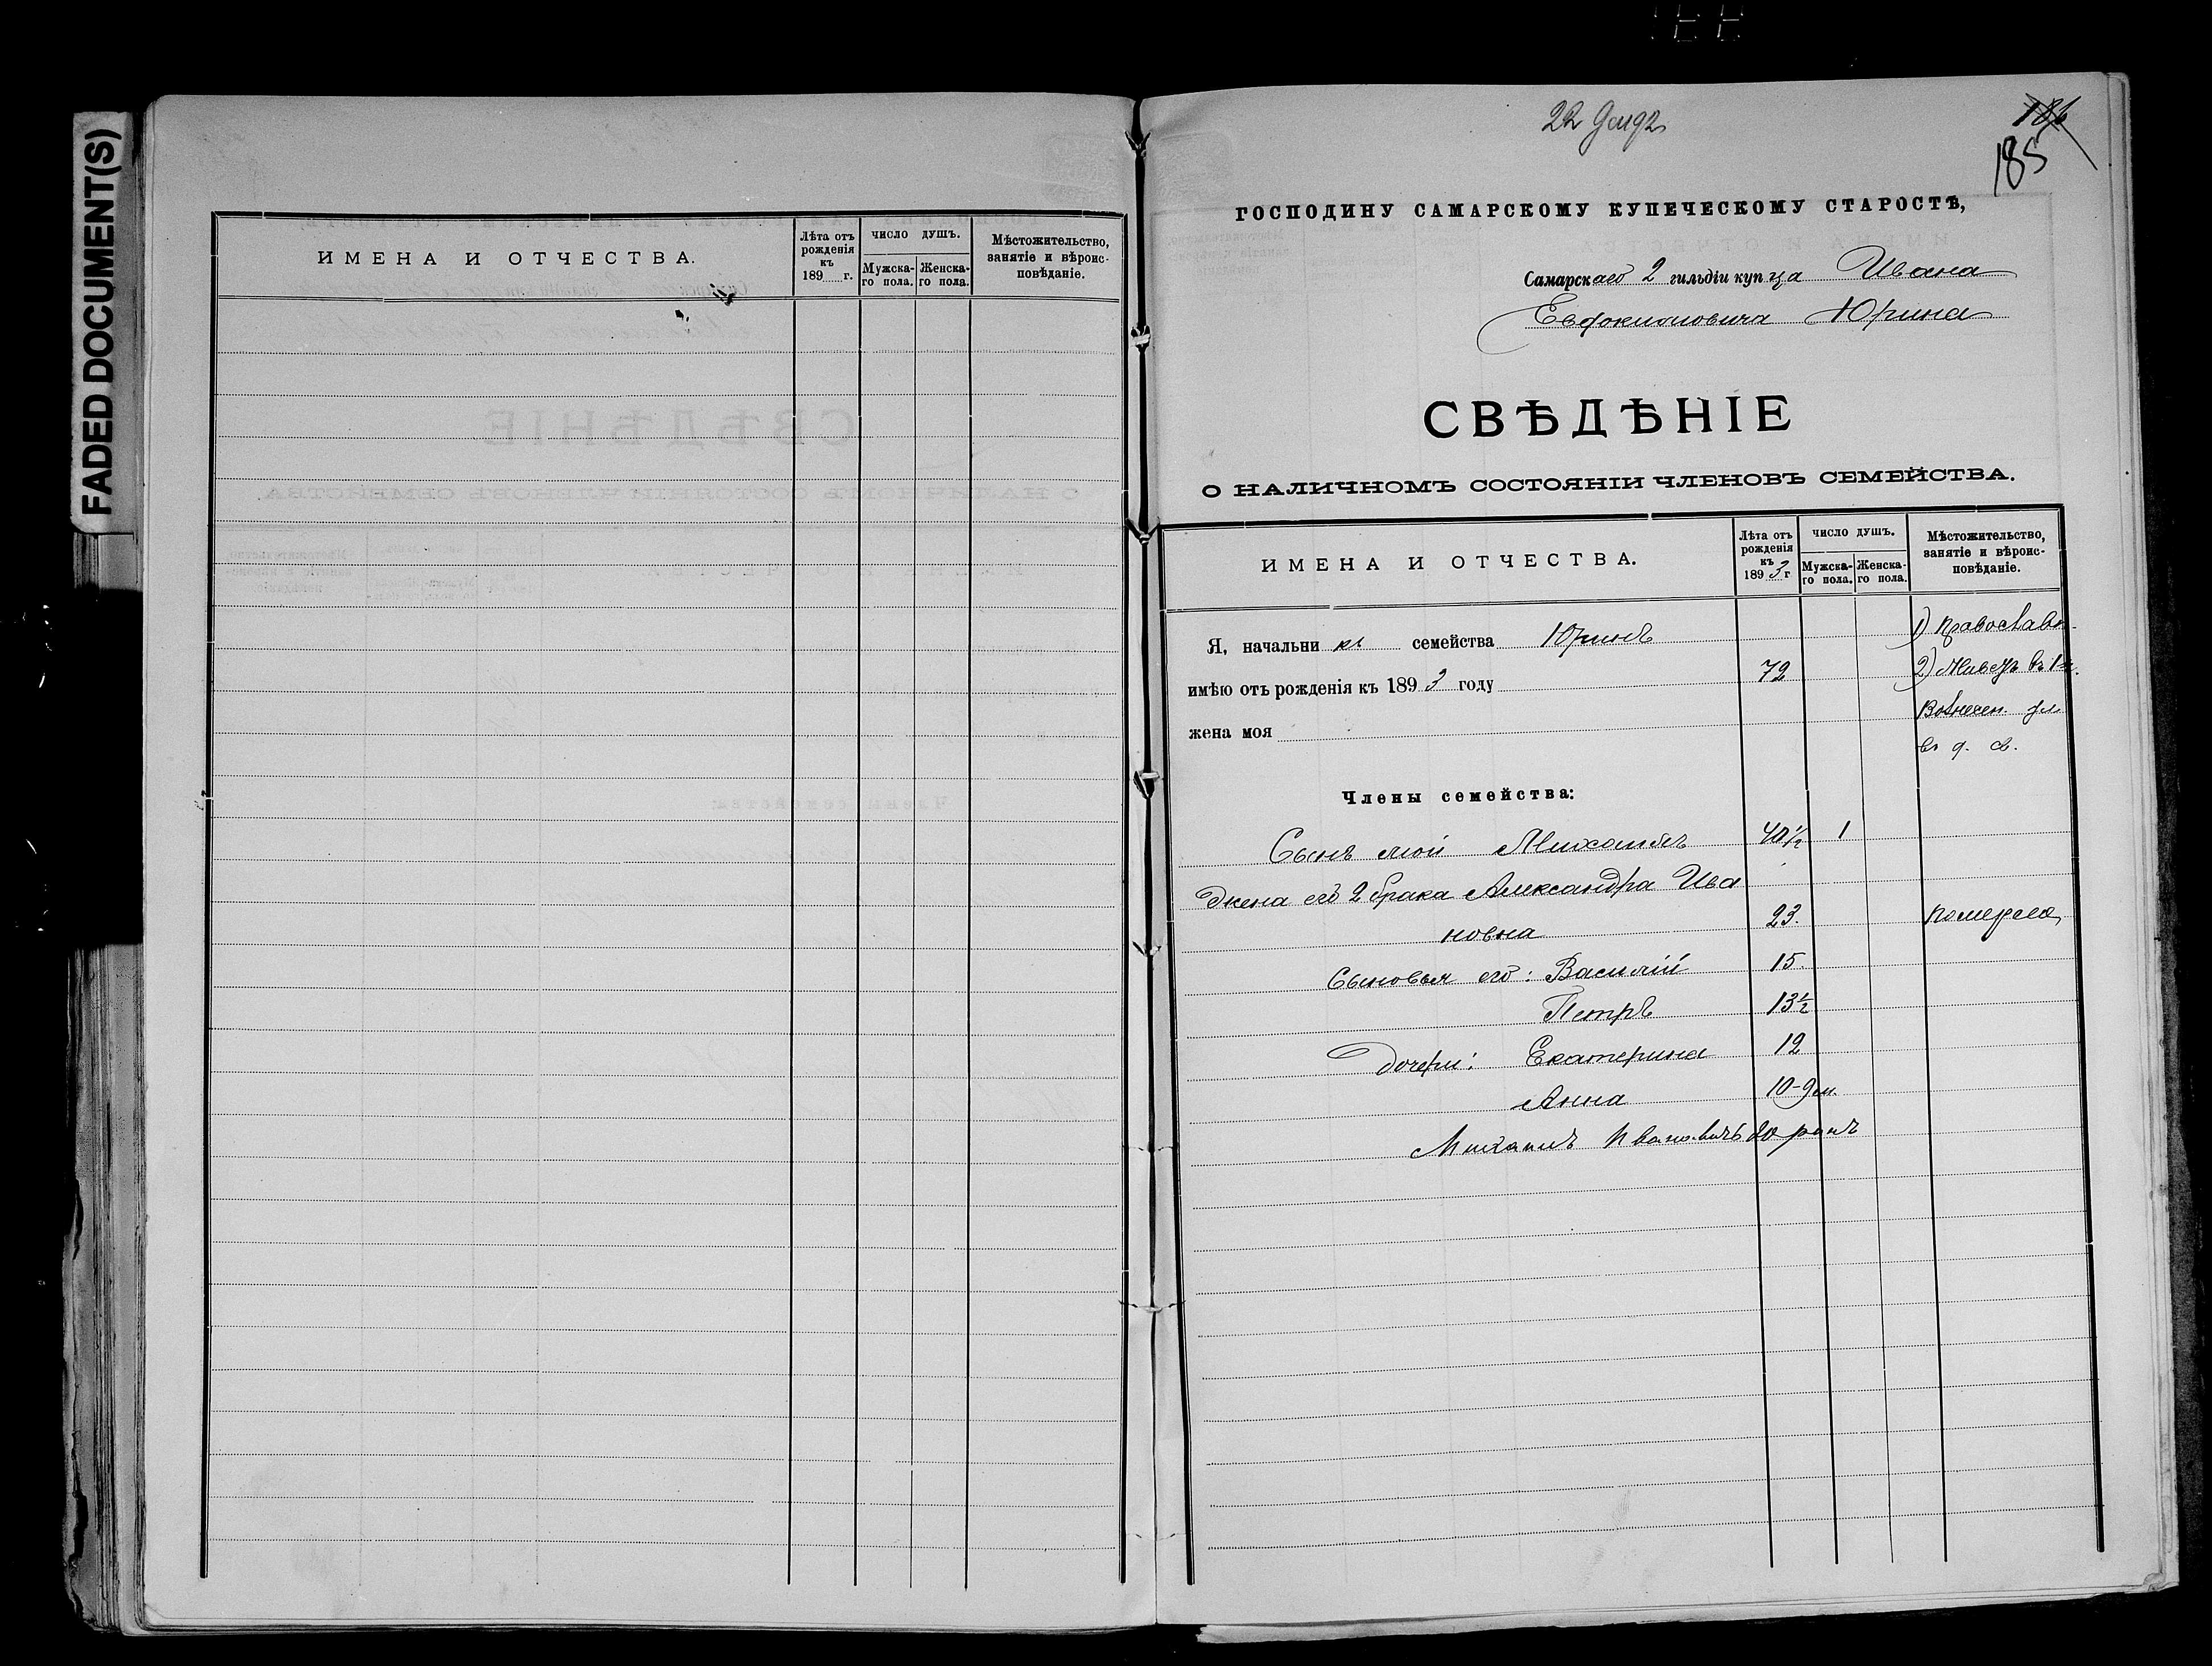 FADED DOCUMENT(S)
ИМЕНА И ОТЧЕСТВА.
Лѣта отъ рожденія къ 189 г.
ЧИСЛО ДУШЪ.
Мужска-го пола.
Женска-го пола.
Мѣстожительство, занятіе и вѣроис-повѣданіе.
22 Дек 92
186
185
ГОСПОДИНУ САМАРСКОМУ КУПЕЧЕСКОМУ СТАРОСТѢ,
Самарскаго 2 гильдіи купца Ивана
Евдокимовича Юрина
СВѢДѢНІЕ
О НАЛИЧНОМЪ СОСТОЯНІИ ЧЛЕНОВЪ СЕМЕЙСТВА.
ИМЕНА И ОТЧЕСТВА.
Лѣта отъ рожденія къ 1893 г
ЧИСЛО ДУШЪ.
Мужска-го пола.
Женска-го пола.
Мѣстожительство, занятіе и вѣроис-повѣданіе.
Я, начальникъ семейства Юринъ 1) Православн.
имѣю отъ рожденія къ 1893 году 72 2) Живетъ въ 1 ч.
жена моя Вознесен. ул
въ д. св.
Члены семейства:
Сынъ мой Михаилъ 40½ 1
Жена его 2 брака Александра Ива
новна 23.
Сыновья его: Василій 15.
Петръ 13½
Дочери: Екатерина 12
Анна 10-9 м.
Михаилъ Ивановичъ